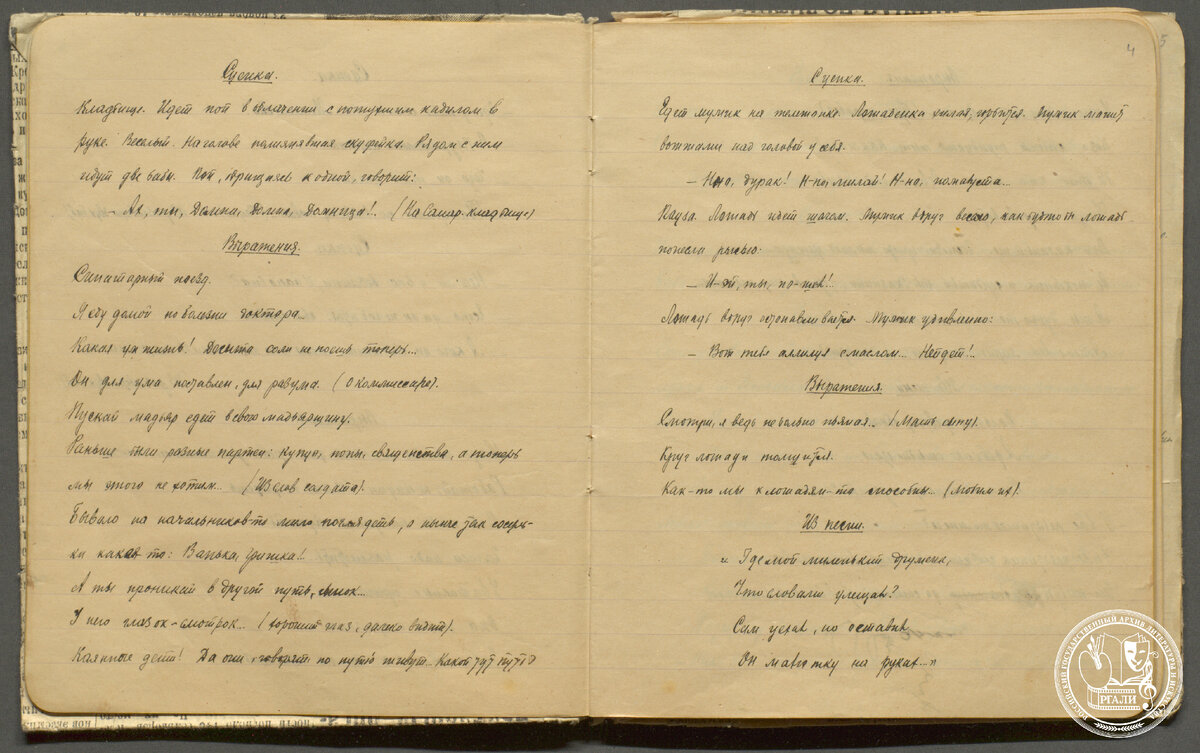 Сценка.
Кладбище. Идет поп в облачении с потухшим кадилом в
руке. Веселый. На голове полинявшая скуфейка. Рядом с ним
идут две бабы. Поп, обращаясь к одной, говорит:
— Ах, ты, Домна, Домна, Домница!.. (На Самар. кладбище)
Выражения.
Санитарный поезд.
Я еду домой по болезни доктара...
Какая уж жизнь! Досыта соли не поешь теперь...
Он для ума поставлен, для разума. (О комиссаре).
Пускай мадьяр едет в свою мадьярщину.
Раньше были разные партеи: купцы, попы, священства, а теперь
мы этого не хотим... (Из слов солдата).
Бывало на начальников-то мило поглядеть, а нынче так сосунь-
ки какие-то: Ванька, Гришка!..
А ты проникай в другой путь, сынок...
У него глазок-смотрок... (хороший глаз, далеко видит).
Каянные дети! Да они, говорят, по путю живут... Какой тут путь?
4
Сценка.
Едет мужик на телешонке. Лошаденка хилая, горбится. Мужик машет
вожжами над головой у себя.
— Н-но, дурак! Н-но, милай! Н-но, пожалуста...
Пауза. Лошадь идет шагом. Мужик вдруг весело, как будто бы лошадь
понесла рысью:
— И-эх, ты, по-шел!..
Лошадь вдруг останавливается. Мужик удивленно:
— Вот тебе аллилуя с маслом... Нейдет!..
Выражения.
Смотри, я ведь не больно пьяная.. (Мать сыну).
Круг лошади толшится.
Как-то мы к лошадям-то способны.. (любим их).
Из песни.
„ Где мой миленький дружочек,
Что словами улещал?
Сам уехал, но оставил
Он малютку на руках..."
5
РОССИЙСКИЙ ГОСУДАРСТВЕННЫЙ АРХИВ ЛИТЕРАТУРЫ И ИСКУССТВА
РГАЛИ